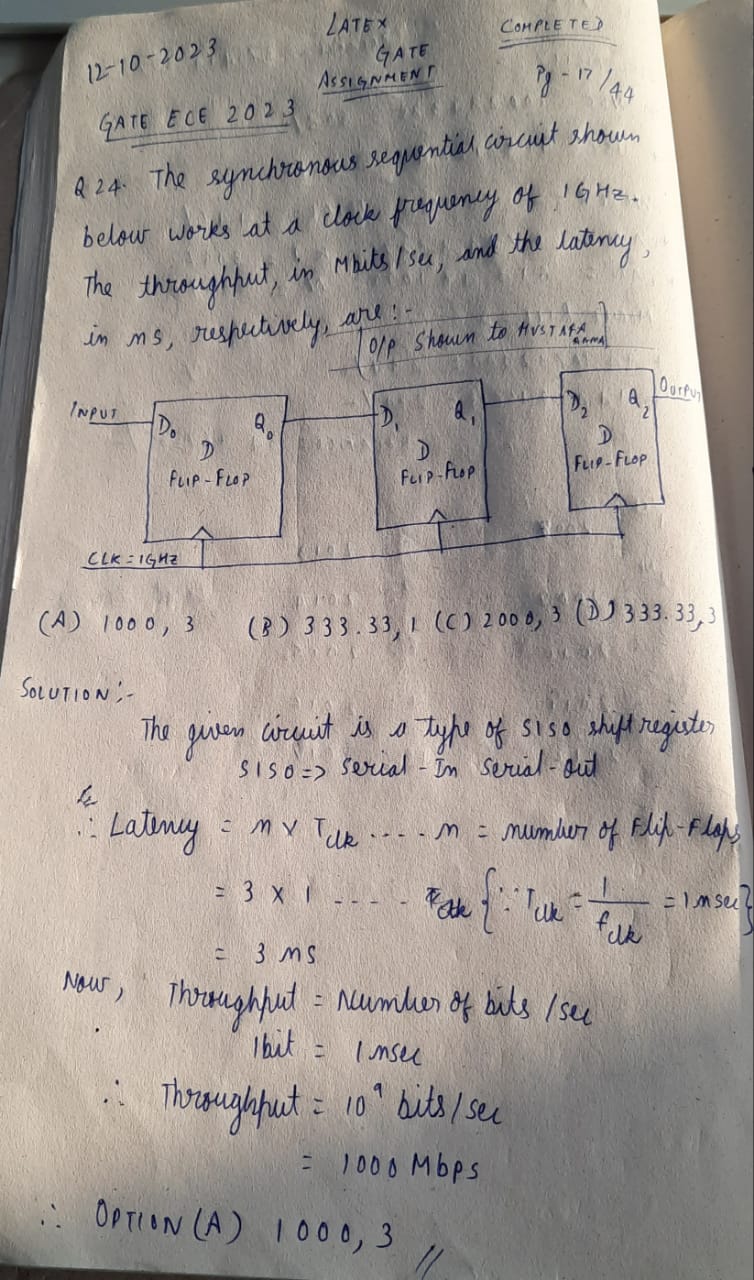 12-10-2023
LATEX
GATE
ASSIGNMENT
COMPLETED
Pg - 17/44
GATE ECE 2023
Q 24. The synchronous sequential circuit shown
below works at a clock frequency of 1GHz.
The throughput, in Mbits/sec, and the latency,
in ns, respectively, are :-
O/P Shown to
INPUT
D₀ Q₀
D
FLIP-FLOP
D₁ Q₁
D
FLIP-FLOP
D₂ Q₂
D
FLIP-FLOP
OUTPUT
CLK = 1GHZ
(A) 1000, 3 (B) 333.33, 1 (C) 2000, 3 (D) 333.33, 3
SOLUTION :-
The given circuit is a type of SISO shift register
SISO => Serial - In Serial - Out
∴ Latency = n x Tclk .... n = number of Flip-Flops
= 3 x 1 .... {∵ Tclk = 1/fclk = 1nsec}
= 3 ns
Now, Throughput = Number of bits /sec
1bit = 1nsec
∴ Throughput = 10⁹ bits/sec
= 1000 Mbps
∴ OPTION (A) 1000, 3 //